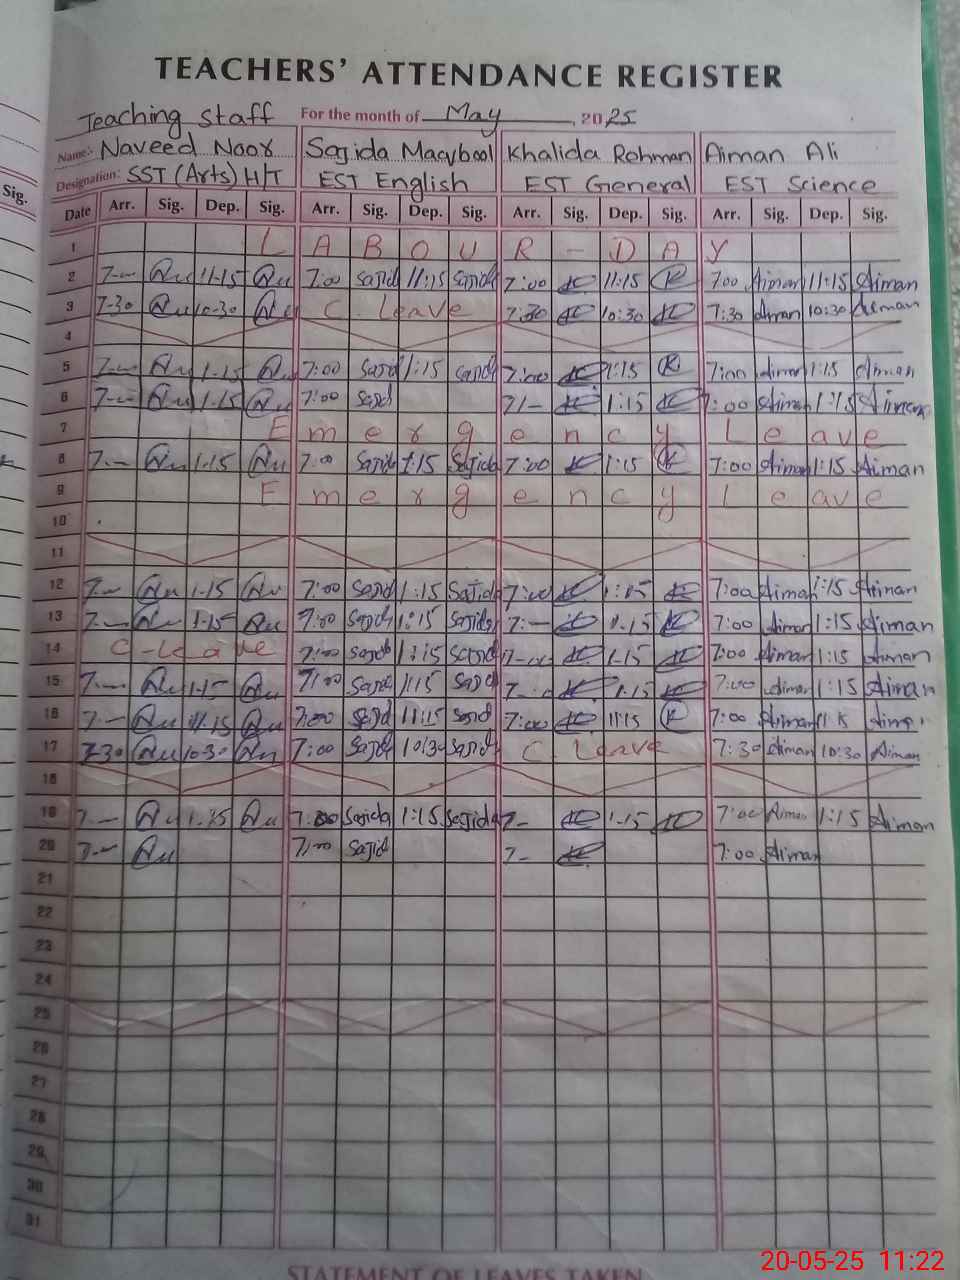 TEACHERS' ATTENDANCE REGISTER
Teaching Staff For the month of May, 2025
Name:- Naveed Noor Sajida Maqbool Khalida Rahman Aiman Ali
Designation: SST (Arts) H/T EST English EST General EST Science
Sig.
Date Arr. Sig. Dep. Sig. Arr. Sig. Dep. Sig. Arr. Sig. Dep. Sig. Arr. Sig. Dep. Sig.
1 L A B O U R - D A Y
2 7-- 11-15 7:00 Sajid 11:15 Sajid 7:00 11:15 K 7:00 Aiman 11:15 Aiman
3 7-30 10-30 C. Leave 7:30 10:30 7:30 Aiman 10:30 Aiman
4
5 7-- 1-15 7:00 Sajid 1:15 Sajid 7:00 1:15 K 7:00 Aiman 1:15 Aiman
6 7-- 1-15 7:00 Sajid 7/- 1:15 7:00 Aiman 1:15 Aiman
7 E m e r g e n c y L e a v e
8 7-- 1-15 7:00 Sajid 1:15 Sajida 7:00 1:15 K 7:00 Aiman 1:15 Aiman
9 E m e r g e n c y L e a v e
10
11
12 7-- 1-15 7:00 Sajid 1:15 Sajida 7:00 1:15 7:00 Aiman 1:15 Aiman
13 7-- 1-15 7:00 Sajid 1:15 Sajida 7:-- 1-15 7:00 Aiman 1:15 Aiman
14 C - L e a v e 7:00 Sajid 1:15 Sajid 1-15 7:00 Aiman 1:15 Aiman
15 7-- 1-15 7:00 Sajid 1:15 Sajid 1-15 7:00 Aiman 1:15 Aiman
16 7-- 11-15 7:00 Sajid 11:15 Sajid 7:00 11:15 K 7:00 Aiman
17 7-30 10-30 7:00 Sajid 10:30 Sajid C. Leave 7:30 Aiman 10:30 Aiman
18
19 7-- 1-15 Sajida 1:15 Sajida 7- 1-15 7:00 Aiman 1:15 Aiman
20 7-- 7:00 Sajid 7- 7:00 Aiman
21
22
23
24
25
26
27
28
29
30
31
STATEMENT OF LEAVES TAKEN
20-05-25 11:22